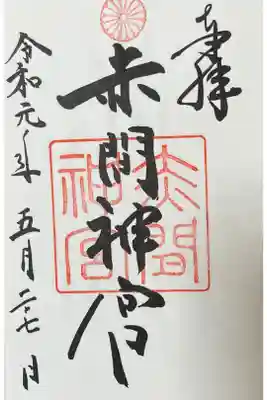 奉拝
赤間神宮
赤間
神宮
令和元年 五月二七日